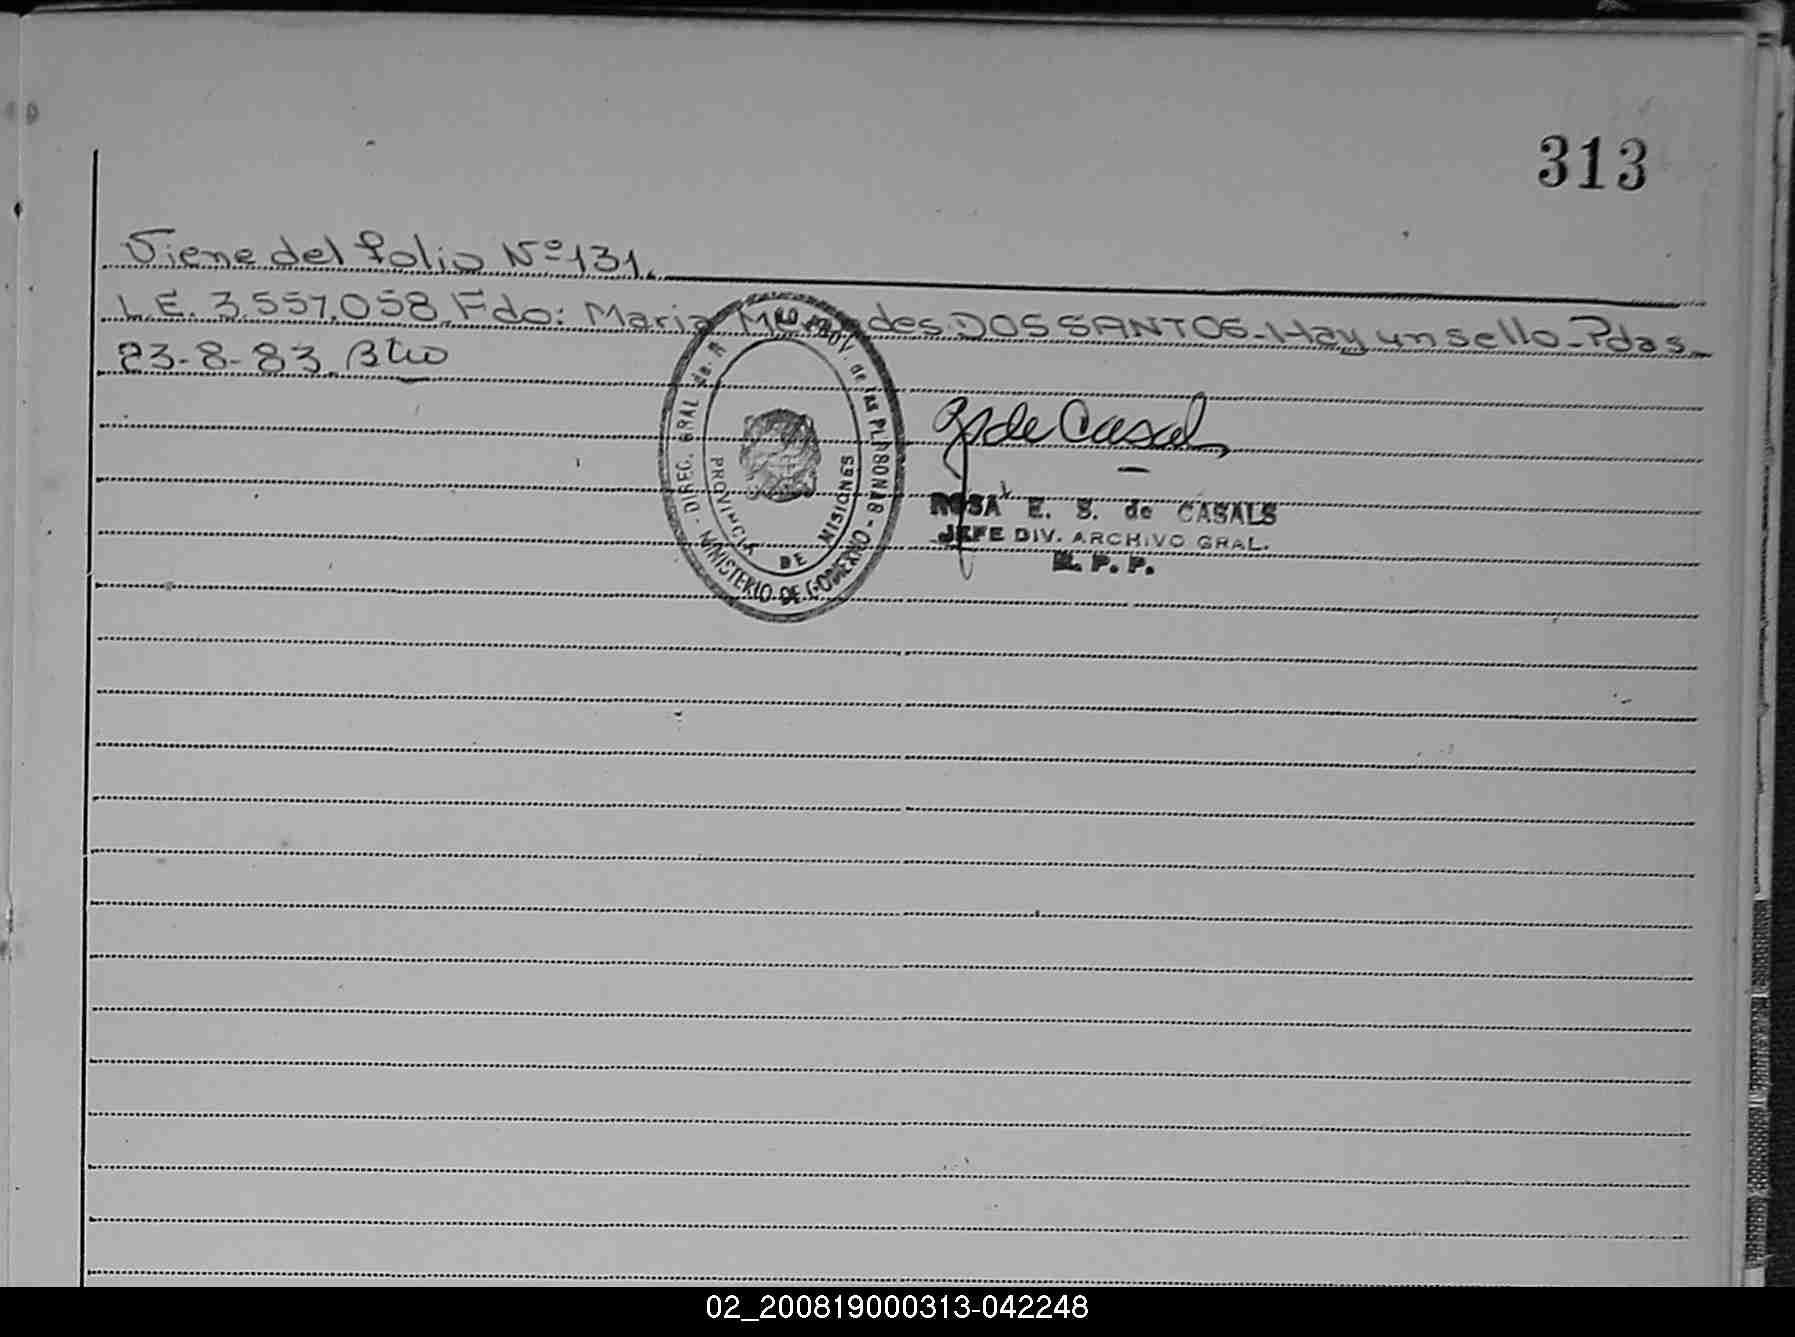 313
Viene del folio Nº 131.
L.E. 3.557.058 Fdo: Maria Mendes DOS SANTOS - Hay un sello - Pdas.
23-8-83. Btio
DIREC. GRAL de R PROV. de las PERSONAS - MINISTERIO DE GOBIERNO -
PROVINCIA DE MISIONES
de Casals
ROSA E. S. de CASALS
JEFE DIV. ARCHIVO GRAL.
R. P. P.
02_200819000313-042248